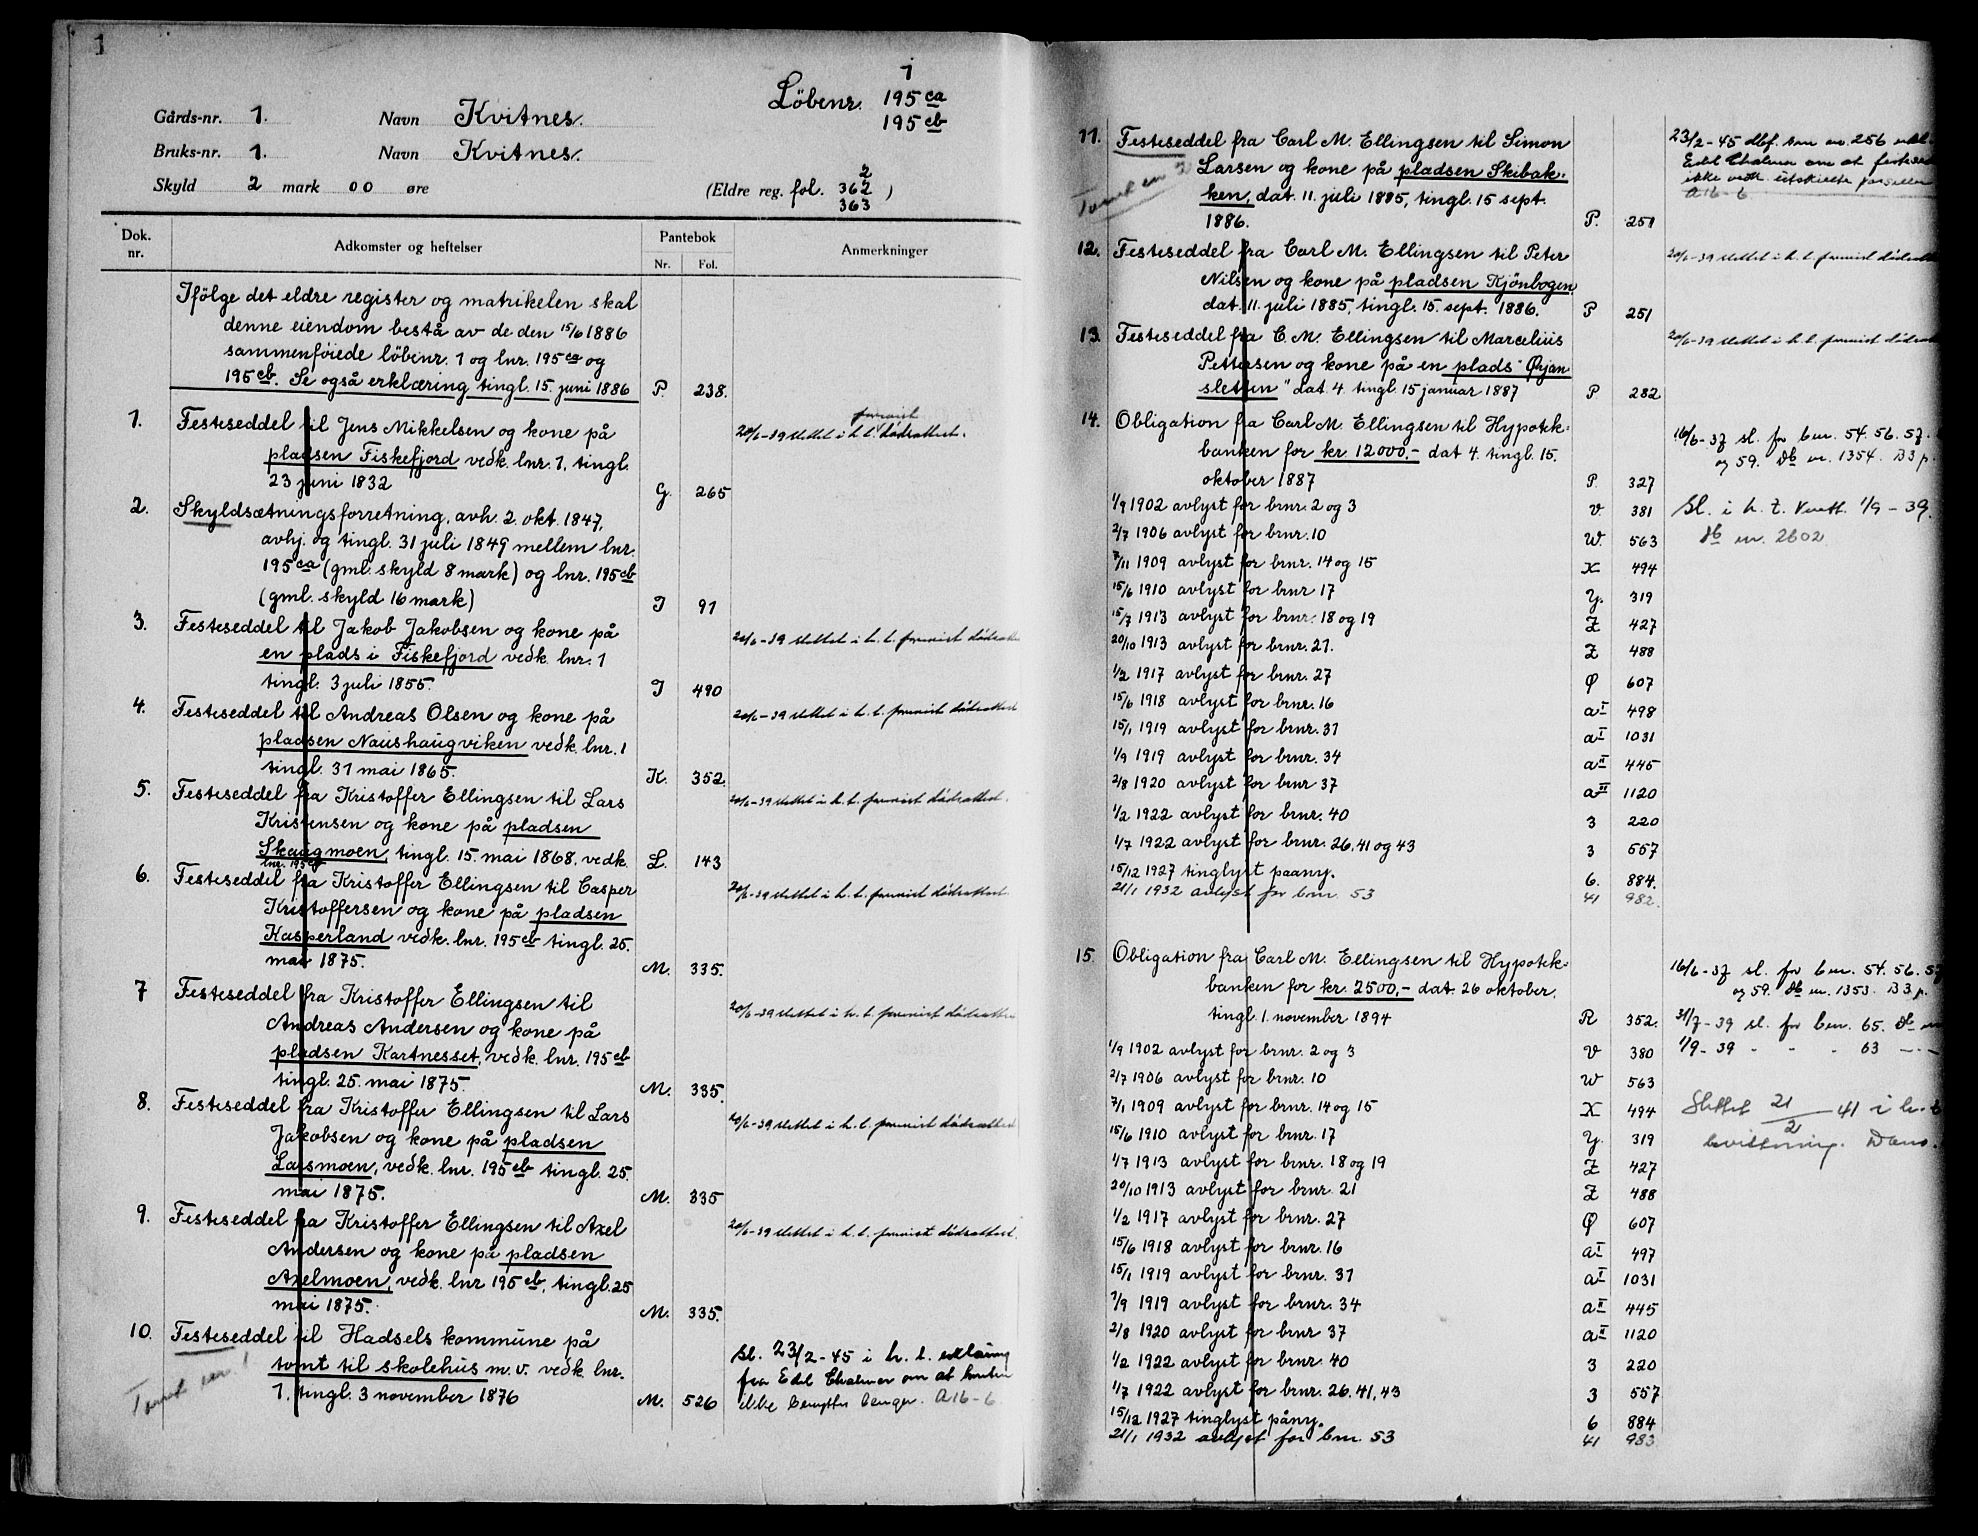 1
Gårds-nr. 1. Navn Kvitnes. Löbenr. 1
195 ca
195 cb
Bruks-nr. 1. Navn Kvitnes.
Skyld 2 mark 00 øre (Eldre reg. fol. 2
362
363 )
Dok. nr. Adkomster og heftelser Pantebok Nr. Fol. Anmerkninger
Ifölge det eldre register og matrikelen skal
denne eiendom bestå av de den 15/6 1886
sammenföiede löbenr. 1 og lnr. 195 ca og
195 cb. Se også erklæring tingl. 15. juni 1886 P. 238.
1. Festeseddel til Jens Mikkelsen og kone på
pladsen Fiskefjord vedk. lnr. 1, tingl.
23 juni 1832 G. 265
20/6-39 slettet i h. t. fremvist dødsattest.
2. Skyldsætningsforretning, avh. 2. okt. 1847,
avhj. og tingl. 31 juli 1849 mellem lnr.
195 ca (gml. skyld 8 mark) og lnr. 195 cb
(gml. skyld 16 mark) I 91
3. Festeseddel til Jakob Jakobsen og kone på
en plads i Fiskefjord vedk. lnr. 1
tingl. 3 juli 1855. I 490
20/6-39 slettet i h. t. fremvist dødsattest
4. Festeseddel til Andreas Olsen og kone på
pladsen Naushaugviken vedk. lnr. 1
tingl. 31 mai 1865. K. 352.
20/6-39 slettet i h. t. fremvist dødsattest
5. Festeseddel fra Kristoffer Ellingsen til Lars
Kristensen og kone på pladsen
Skaugmoen, tingl. 15. mai 1868, vedk. L. 143
lnr. 195 cb
20/6-39 slettet i h. t. fremvist dødsattest.
6. Festeseddel fra Kristoffer Ellingsen til Casper
Kristoffersen og kone på pladsen
Kasperland vedk. lnr. 195 cb tingl. 25.
mai 1875. M. 335.
20/6-39 slettet i h. t. fremvist dødsattest.
7 Festeseddel fra Kristoffer Ellingsen til
Andreas Andersen og kone på
pladsen Kartnesset, vedk. lnr. 195 cb
tingl. 25. mai 1875. M. 335.
20/6-39 slettet i h. t. fremvist dødsattest
8. Festeseddel fra Kristoffer Ellingsen til Lars
Jakobsen og kone på pladsen
Larsmoen, vedk. lnr. 195 cb tingl. 25.
mai 1875. M. 335
20/6-39 slettet i h. t. fremvist dødsattest
9. Festeseddel fra Kristoffer Ellingsen til Axel
Andersen og kone på pladsen
Axelmoen, vedk. lnr 195 cb, tingl. 25
mai 1875. M. 335.
20/6-39 slettet i h. t. fremvist dødsattest.
10. Festeseddel til Hadsels kommune på
tomt til skolehus m.v. vedk. lnr.
1. tingl. 3 november 1876 M. 526
Tomt nr. 1
Sl. 23/2-45 i h. t. erklæring
fra Edel Chalmer om at tomten
ikke benyttes lenger. A16-6
11. Festeseddel fra Carl M. Ellingsen til Simon
Larsen og kone på pladsen Skibak-
ken, dat. 11. juli 1885, tingl. 15 sept.
1886. P. 251
Tomt nr 2
23/2-45 dbf. som nr. 256 erkl.
Edel Chalmer om at
ikke vedk. utskilte parseller
A16-6
12. Festeseddel fra Carl M. Ellingsen til Peter
Nilsen og kone på pladsen Kjönbogen
dat. 11. juli 1885, tingl. 15. sept. 1886. P 251
20/6-39 slettet i h. t. fremvist
13. Festeseddel fra C. M. Ellingsen til Marcelius
Pettersen og kone på en plads "Ørjan
sletten" dat. 4. tingl. 15 januar 1887 P 282
20/6-39 slettet i h. t. fremvist
14. Obligation fra Carl M. Ellingsen til Hypotek-
banken for kr. 12000.- dat 4. tingl. 15.
oktober 1887 P. 327
16/6-37 sl. for bnr. 54. 56. 57.
og 59. Db nr. 1354. B3 p.
1/9 1902 avlyst for brnr. 2 og 3 V 381
Sl. i h. t. kvitt. 1/9-39.
Db nr. 2602
2/7 1906 avlyst for brnr. 10 W. 563
7/11 1909 avlyst for brnr. 14 og 15 X 494
15/6 1910 avlyst for brnr 17 Y. 319
15/7 1913 avlyst for brnr. 18 og 19 Z 427
20/10 1913 avlyst for brnr. 21. Z 488
1/2 1917 avlyst for brnr. 27 Ø 607
15/6 1918 avlyst for brnr. 16 a I 498
15/1 1919 avlyst for brnr. 31 a I 1031
1/9 1919 avlyst for brnr. 34 a II 445
2/8 1920 avlyst for brnr 37 a II 1120
1/2 1922 avlyst for brnr. 40 3 220
1/7 1922 avlyst for brnr. 26, 41 og 43 3 557
15/12 1927 tinglyst paany. 6. 884.
21/1 1932 avlyst for bnr. 53 41 982.
15. Obligation fra Carl M. Ellingsen til Hypotek-
banken for kr. 2500,- dat. 26 oktober.
tingl. 1. november 1894 R 352.
16/6-37 sl. for bnr. 54. 56. 57
og 59. Db nr. 1353. B3 p.
31/7-39 sl. for bnr. 65. Db nr
1/9-39 - - - 63 - -
1/9 1902 avlyst for brnr. 2 og 3 V 380
2/7 1906 avlyst for brnr. 10 W 563
7/1 1909 avlyst for brnr. 14 og 15 X 494
Slettet 21/2 41 i h. t.
bevittning.
15/6 1910 avlyst for brnr. 17 Y. 319
1/7 1913 avlyst for brnr. 18 og 19 Z 427
20/10 1913 avlyst for brnr. 21 Z 488
1/2 1917 avlyst for brnr. 27 Ø 607
15/6 1918 avlyst for brnr. 16 a I 497
15/1 1919 avlyst for brnr. 31 a I 1031
1/9 1919 avlyst for brnr. 34 a II 445
2/8 1920 avlyst for brnr 37 a II 1120
1/2 1922 avlyst for brnr. 40 3 220
1/7 1922 avlyst for brnr. 26, 41, 43 3 557
15/12 1927 tinglyst påny. 6 884
21/1 1932 avlyst for bnr. 53 41 983